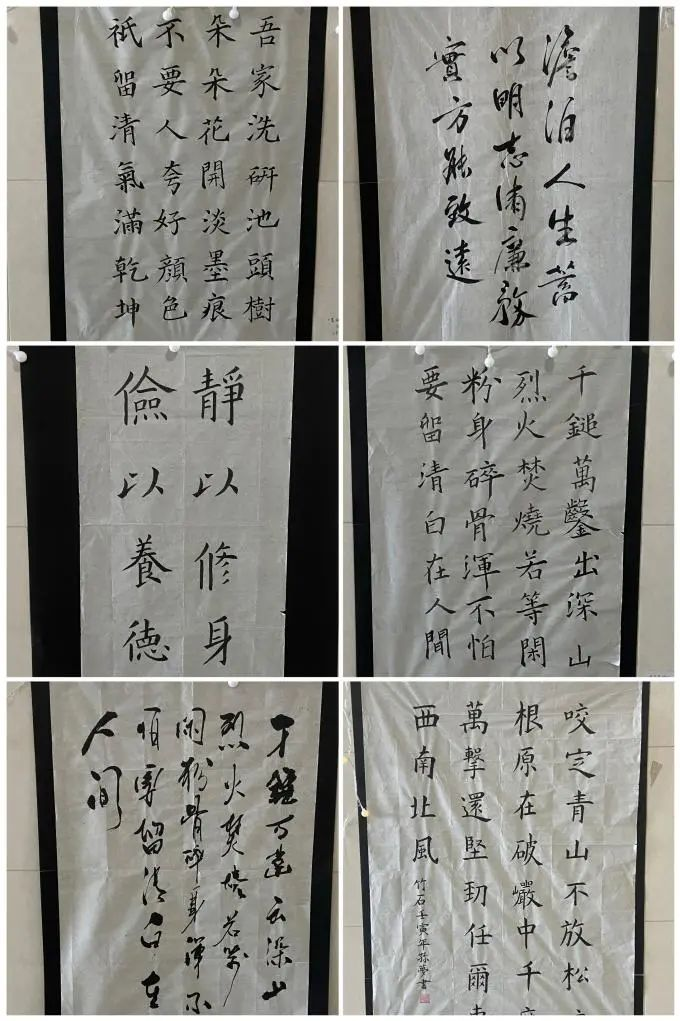 吾家洗研池頭樹
朵朵花開淡墨痕
不要人夸好顏色
祇留清氣滿乾坤
澹泊人生蓄
以明志清廉務
實方能致遠
靜以修身
儉以養德
千鎚萬鑿出深山
烈火焚燒若等閑
粉身碎骨渾不怕
要留清白在人間
千鎚万鑿出深山
烈火焚燒若等
闲粉骨碎身渾不
怕要留清白在
人间
咬定青山不放松
根原在破巖中千
萬擊還堅勁任爾東
西南北風
竹石壬寅年孫夢書